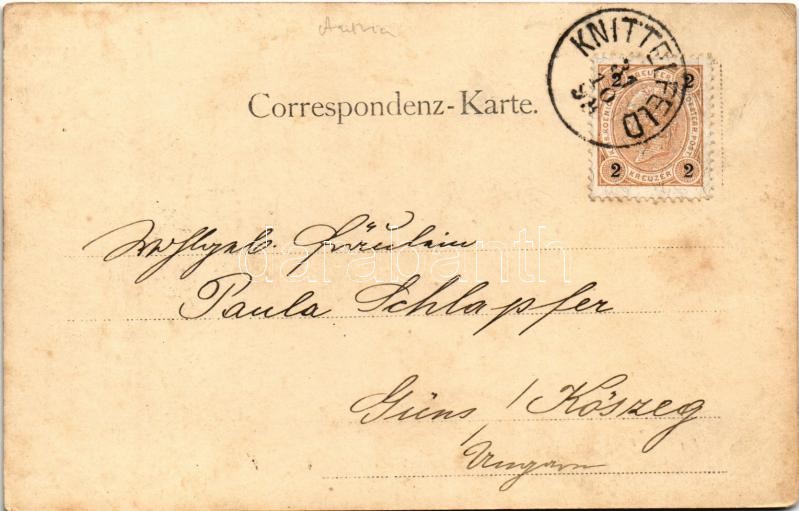 Austria
KNITTELFELD
2 KREUZER 2
Correspondenz-Karte.
Wohlgeb. Fräulein
darabanth
Paula Schlapfer
Güns / Kőszeg
/ Ungarn